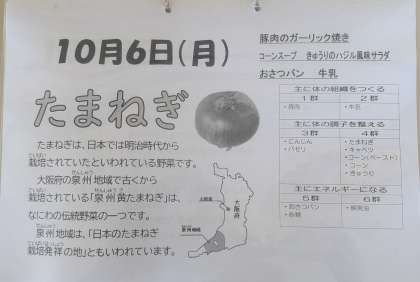 10月6日(月)
豚肉のガーリック焼き
コーンスープ きゅうりのバジル風味サラダ
おさつパン 牛乳
たまねぎ
たまねぎは、日本では明治時代から
栽培されていたといわれている野菜です。
大阪府の泉州地域で古くから
栽培されている「泉州黄たまねぎ」は、
なにわの伝統野菜の一つです。
泉州地域は、「日本のたまねぎ
栽培発祥の地」ともいわれています。
大阪府
泉州地域
主に体の組織をつくる
1群 2群
・豚肉 ・牛乳
主に体の調子を整える
3群 4群
・にんじん ・たまねぎ
・パセリ ・キャベツ
・コーン(ペースト)
・コーン
・きゅうり
主にエネルギーになる
5群 6群
・おさつパン